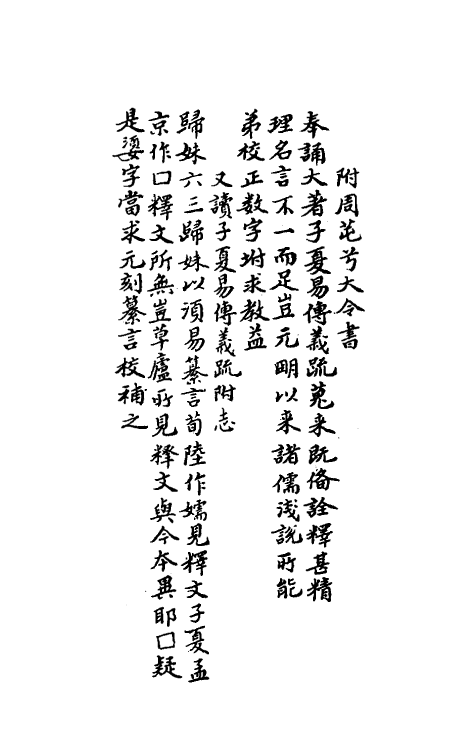 附周芚兮大令書
奉誦大著子夏易傳義疏蒐来既俻詮釋甚精
理名言不一而足豈元明以来諸儒淺說所能
弟校正数字坿求教益
又讀子夏易傳義疏附志
歸妹六三歸妹以須易纂言荀陸作嬬見釋文子夏孟
京作口釋文所無豈草廬所見釋文與今本異耶口疑
是嬃字當求元刻纂言校補之